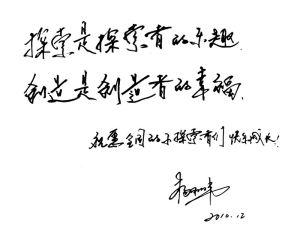 探索是探索者的乐趣.
创造是创造者的幸福.
祝愿全国的小探索者们快乐成长!
2010.12